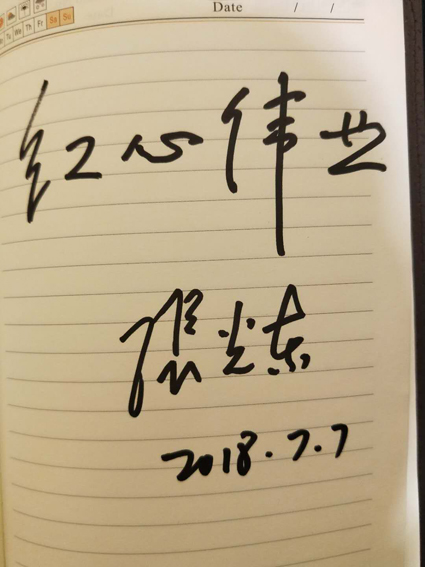 Date / /
Tu We Th Fr Sa Su
红心伟业
2018.7.7